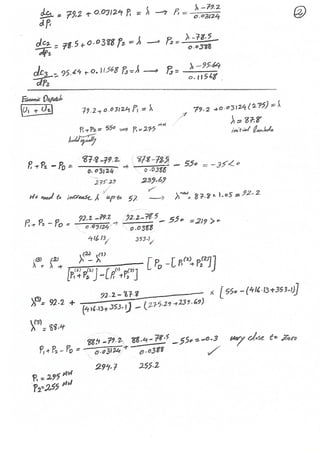 ②
dc₁/dP₁ = 79.2 + 0.03124 P₁ = λ → P₁ = (λ - 79.2)/0.03124
dc₂/dP₂ = 78.5 + 0.0388 P₂ = λ → P₂ = (λ - 78.5)/0.0388
dc₃/dP₂ = 95.64 + 0.11568 P₃ = λ → P₃ = (λ - 95.64)/0.11568
Economic Dispatch
U₁ + U₂
79.2 + 0.03124 P₁ = λ 79.2 + 0.03124 (275) = λ
P₁ + P₂ = 550 → P₁ = 275 MW λ = 87.8
load equally initial lambda
P₁ + P₂ - PD = (87.8 - 79.2)/0.03124 + (87.8 - 78.5)/0.0388 - 550 = -35 < 0
275.29 239.69
We need to increase λ up to 5% → λnew = 87.8 × 1.05 = 92.2
P₁ + P₂ - PD = (92.2 - 79.2)/0.03124 + (92.2 - 78.5)/0.0388 - 550 = 219 > 0
416.13 353.1 ✓
λ⁽³⁾ = λ⁽²⁾ + (λ⁽²⁾ - λ⁽¹⁾)/([P₁⁽²⁾ + P₂⁽²⁾] - [P₁⁽¹⁾ + P₂⁽¹⁾]) [PD - [P₁⁽²⁾ + P₂⁽²⁾]]
λ⁽³⁾ = 92.2 + (92.2 - 87.8)/((416.13 + 353.1) - (275.29 + 239.69)) × [550 - (416.13 + 353.1)]
λ⁽³⁾ = 88.4
P₁ + P₂ - PD = (88.4 - 79.2)/0.03124 + (88.4 - 78.5)/0.0388 - 550 = -0.3 very close to Zero
294.7 255.2 ✓
P₁ = 295 MW
P₂ = 255 MW